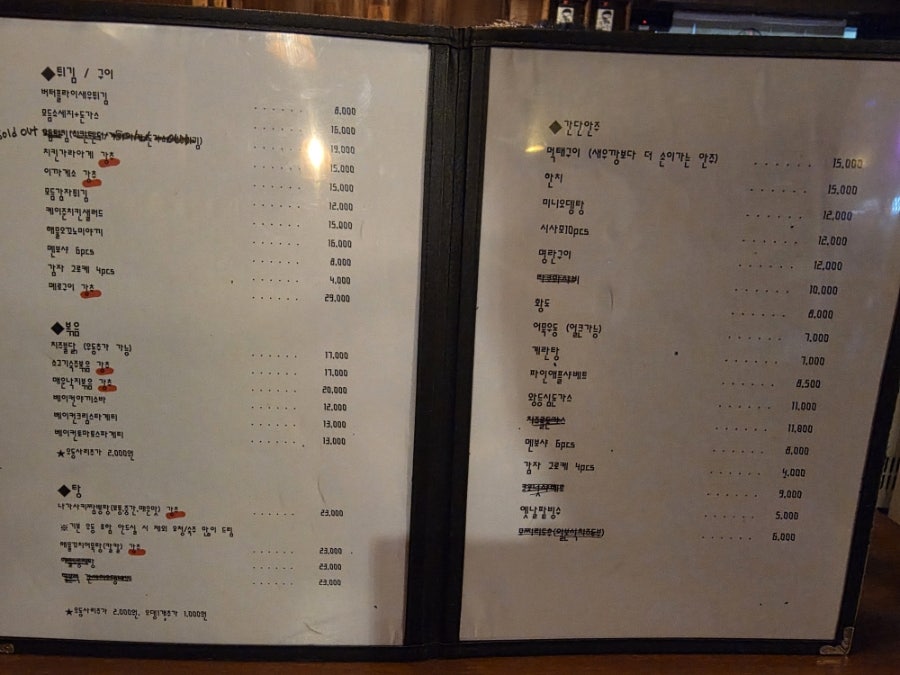 ◆튀김 / 구이
버터플라이새우튀김 . . . . . . 8,000
모듬소세지+돈가스 . . . . . . 16,000
Sold out . . . . . . 19,000
치킨가라아게 강추 . . . . . . 15,000
이까게소 강추 . . . . . . 15,000
모듬감자튀김 . . . . . . 12,000
케이준치킨샐러드 . . . . . . 15,000
해물오꼬노미야끼 . . . . . . 16,000
멘보샤 6pcs . . . . . . 8,000
감자 고로케 4pcs . . . . . . 4,000
메로구이 강추 . . . . . . 29,000
◆볶음
치즈불닭 (우동추가 가능) . . . . . . 17,000
소고기숙주볶음 강추 . . . . . . 17,000
매운낙지볶음 강추 . . . . . . 20,000
베이컨야끼소바 . . . . . . 12,000
베이컨크림스파게티 . . . . . . 13,000
베이컨토마토스파게티 . . . . . . 13,000
★우동사리추가 2,000원
◆탕
나가사끼짬뽕탕(보통,중간,매운맛) 강추 . . . . . . 23,000
※기본 우동 포함 안드실 시 제외 요청/숙주 많이 드림
해물꼬치어묵탕(칼칼) 강추 . . . . . . 23,000
. . . . . . 23,000
. . . . . . 23,000
★우동사리추가 2,000원, 오뎅1개추가 1,000원
◆간단안주
먹태구이 (새우깡보다 더 손이가는 안주) . . . . . . 15,000
한치 . . . . . . 15,000
미니오뎅탕 . . . . . . 12,000
시사모10pcs . . . . . . 12,000
명란구이 . . . . . . 12,000
타코와사비 . . . . . . 10,000
황도 . . . . . . 8,000
어묵우동 (얼큰가능) . . . . . . 7,000
계란탕 . . . . . . 7,000
파인애플샤베트 . . . . . . 8,500
왕등심돈가스 . . . . . . 11,000
치즈롤돈까스 . . . . . . 11,800
멘보샤 6pcs . . . . . . 8,000
감자 고로케 4pcs . . . . . . 4,000
. . . . . . 9,000
옛날팥빙수 . . . . . . 5,000
. . . . . . 6,000